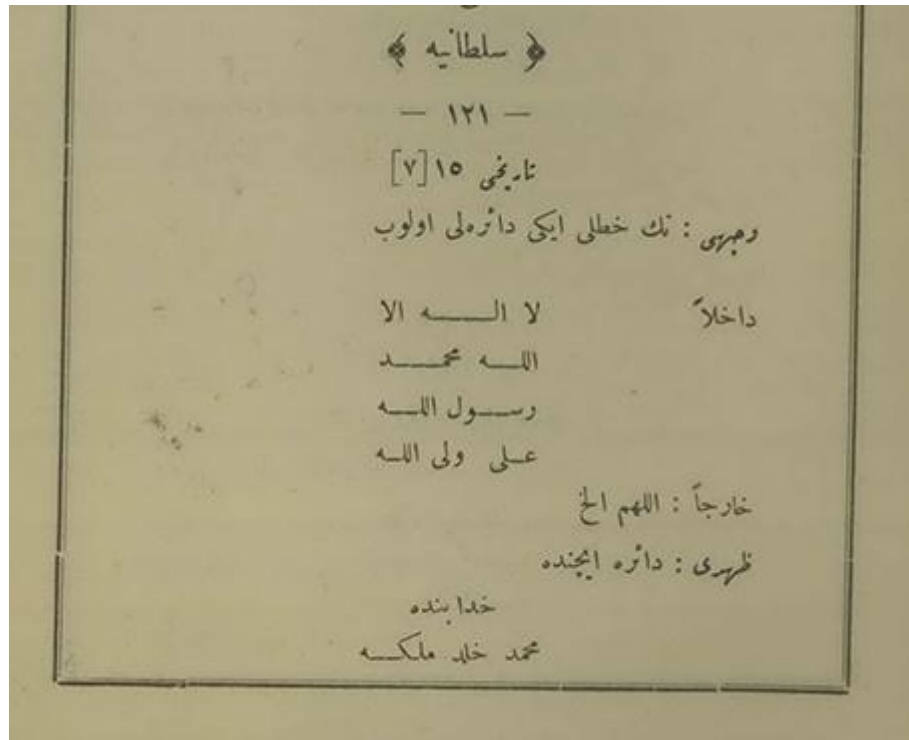 ﴿ سلطانیه ﴾
— ١٢١ —
تاریخی ١٥[٧]
وجهی : تك خطلی ایكی دائره‌لی اولوب
داخلاً لا الـــــه الا
اللـــه محمـــد
رســـول اللـــه
عــلی ولی اللــه
خارجاً : اللهم الخ
ظهری : دائره ایچنده
خدا بنده
محمد خلد ملكـــه